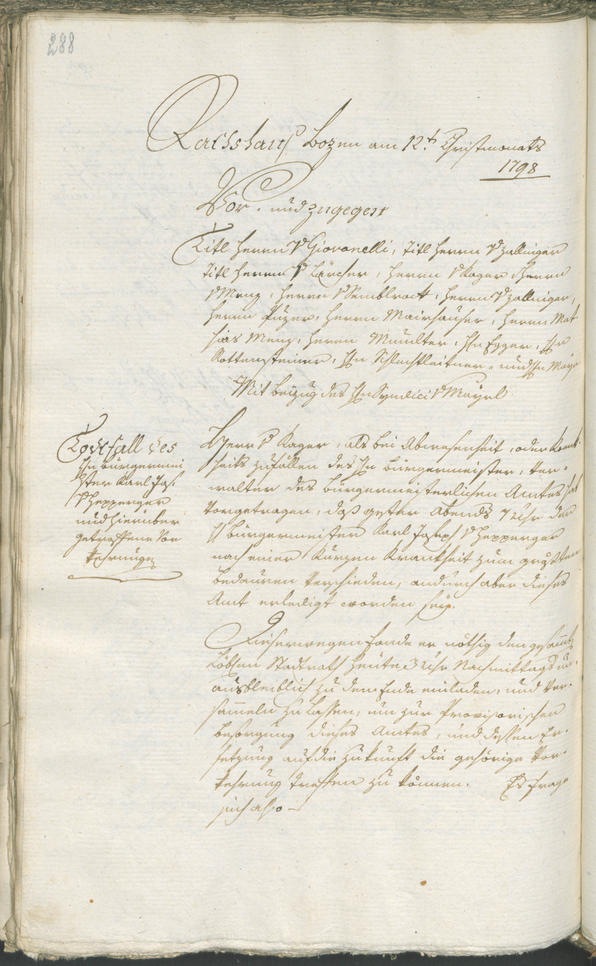 288
Rathshaus Bozen am 12t Christmonats
1798
Vor- und zugegen
Titl Herrn v Giovanelli, Titl Herrn v Zallinger
Titl Herrn v Larcher, Herrn v Kager Herrn
v Menz, Herrn v Sembl Herrn v Zallinger,
Herrn Puzer, Herrn Mairhauser, Herrn Mat
hias Menz, Herrn Mumlter, Hn Egger, Hn
Rottensteiner, Hn Schlechtleitner, und Hn Mayr
Mit beizug des Hn Syndici v Mayrl
Todfall des
Hn Bürgermei
ster Karl Jos:
v Hepperger
und hierüber
getroffene Vor
kehrung
Herr v Kager, als bei Abwesenheit, oder Krank
heits zufällen des Hn Bürgermeister, Ver-
walter des bürgermeisterlichen Amtes hat
vorgetragen, daß gester Abends 7 Uhr der
H Bürgermeister Karl Joseph v Hepperger
nach einer kurzen Krankheit zum größten
bedauren verschieden, andurch aber dieses
Amt erledigt worden sey.
Dieserwegen fande er nöthig den gesamt
Löbln Stadtrath heute 3 Uhr Nachmittags un-
ausbleiblich zu dem Ende einladen, und ver-
sammeln zu lassen, um zur Provisorischen
besorgung dieses Amtes, und dessen Er-
setzung auf die Zukunft die gehörige Vor-
kehrung treffen zu können. Es frage
sich also